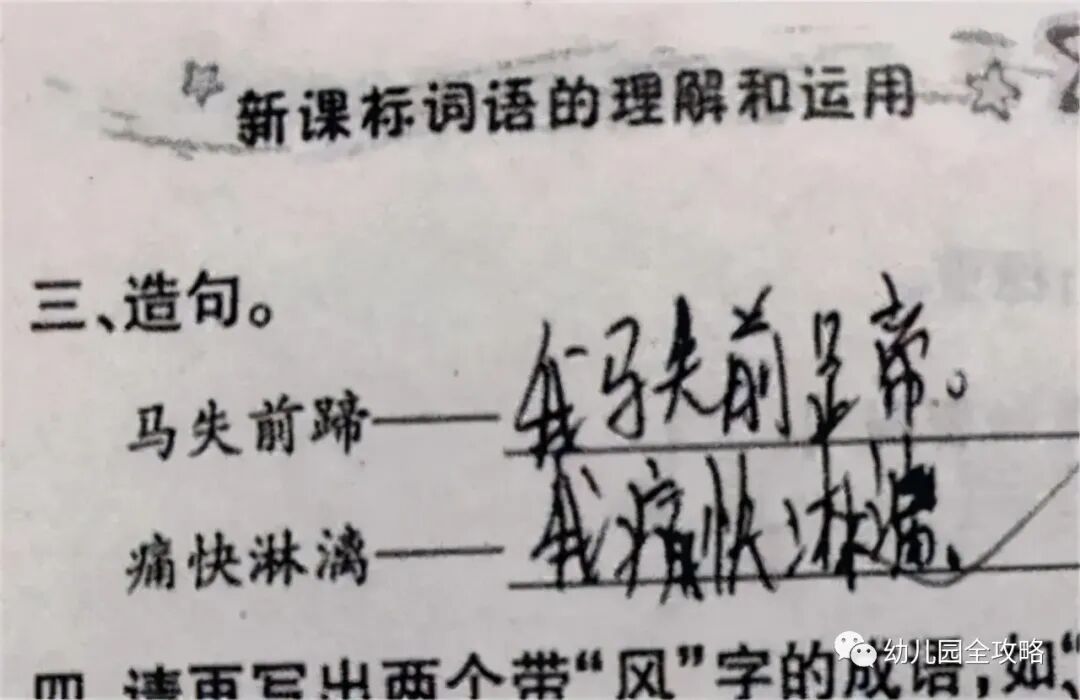 新课标词语的理解和运用
三、造句。
马失前蹄——我马失前蹄。
痛快淋漓——我痛快淋漓、
四、请再写出两个带“风”字的成语,如“
幼儿园全攻略